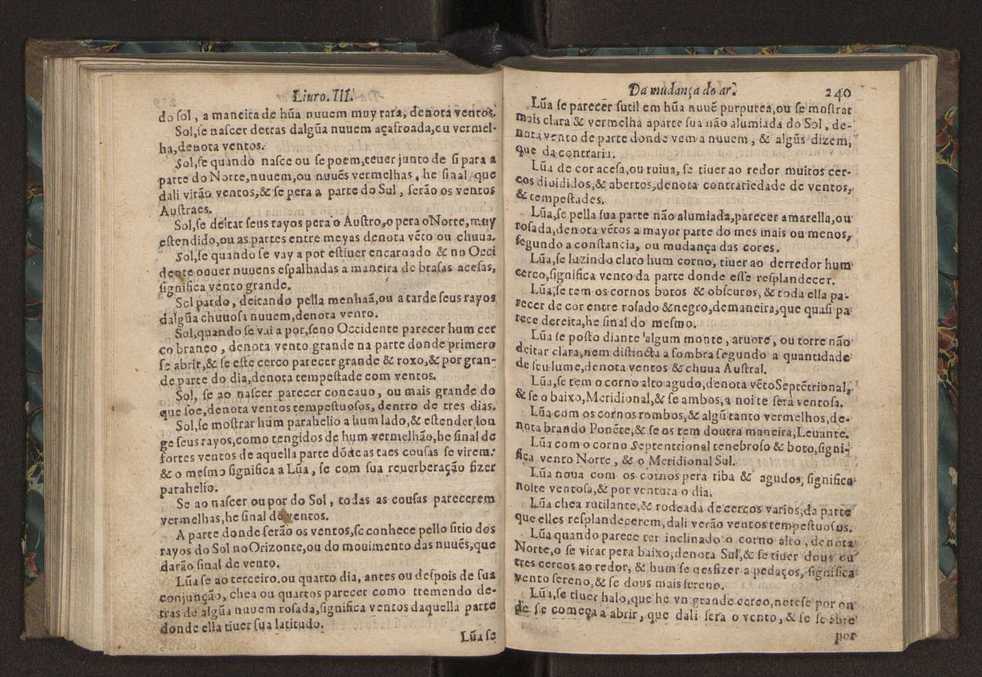 Liuro. III.
do sol, a maneira de hũa nuuem muy rara, denota ventos.
Sol,se nascer detras dalgũa nuuem açafroada,ou vermel-
ha,denota ventos.
Sol,se quando nasce ou se poem,teuer junto de si para a
parte do Norte,nuuem,ou nuuẽs vermelhas, he sinal que
dali virão ventos,& se pera a parte do Sul, serão os ventos
Austraes.
Sol,se deitar seus rayos pera o Austro,o pera oNorte,muy
estendido,ou as partes entre meyas denota vẽto ou chuua.
Sol,se quando se vay a por estiuer encarnado & no Occi
dente ouuer nuuens espalhadas a maneira de brasas acesas,
significa vento grande.
Sol pardo, deitando pella menhaã,ou a tarde seus rayos
dalgũa chuuosa nuuem,denota vento.
Sol,quando se vai a por,seno Occidente parecer hum cer
co branco, denota vento grande na parte donde primero
se abrir,& se este cerco parecer grande & roxo,& por gran-
de parte do dia,denota tempestade com ventos.
Sol, se ao nascer parecer concauo, ou mais grande do
que soe,denota ventos tempestuosos, dentro de tres dias.
Sol,se mostrar hum parahelio a hum lado,& estender lon
ge seus rayos,como tengidos de hum vermelhão,he sinal de
fortes ventos de aquella parte dõde as taes cousas se virem:
& o mesmo significa a Lũa, se com sua reuerberação fizer
parahelio.
Se ao nascer ou por do Sol, todas as cousas parecerem
vermelhas,he sinal de ventos.
A parte donde serão os ventos,se conhece pello sitio dos
rayos do Sol no Orizonte,ou do mouimento das nuuẽs,que
darão sinal de vento.
Lũa se ao terceiro,ou quarto dia, antes ou despois de sua
conjunção, chea ou quartos parecer como tremendo de-
tras de algũa nuuem rosada,significa ventos daquella parte
donde ella tiuer sua latitudo.
Lũa se
Da mudança do ar.
240
Lũa se parecer sutil em hũa nuuẽ purputea,ou se mostrar
mais clara & vermelha aparte sua não alumiada do Sol, de-
nota vento de parte donde vem a nuuem, & algũs dizem,
que da contraria.
Lũa de cor acesa,ou ruiua, se tiuer ao redor muitos cer-
cos diuididos,& abertos,denota contrariedade de ventos,
& tempestades.
Lũa,se pella sua parte não alumiada,parecer amarella,ou
rosada,denota vẽtos a mayor parte do mes mais ou menos,
segundo a constancia, ou mudança das cores.
Lũa,se luzindo claro hum corno, tiuer ao derredor hum
cerco,significa vento da parte donde esse resplandecer.
Lũa,se tem os cornos botos & obscuros,& toda ella pa-
recer de cor entre rosado &negro,demaneira,que quasi pa
rece dereita,he sinal do mesmo.
Lũa se posto diante algum monte, aruore, ou torre não
deitar clara,nem distincta a sombra segundo a quantidade
de seu lume,denota ventos & chuua Austral.
Lũa,se tem o corno alto agudo,denota vẽto Septẽtrional,
& se o baixo,Meridional,& se ambos,a noite será ventosa.
Lũa com os cornos rombos,& algũ tanto vermelhos,de-
nota brando Ponẽte,& se os tem doutra maneira,Leuante.
Lũa com o corno Septentrional tenebroso & boto,signi-
fica vento Norte, & o Meridional Sul.
Lũa noua com os cornos pera riba & agudos, significa
noite ventosa,& por ventura o dia.
Lũa chea rutilante,& rodeada de cercos varios,da parte
que elles resplandecerem,dali verão ventos tempestuosos.
Lũa quando parece ter inclinado o corno alto, denota
Norte,o se virar pera baixo,denota Sul,& se tiuer dous ou
tres cercos ao redor, & hum se desfizer a pedaços, significa
vento sereno,& se dous mais sereno.
Lũa,se tiuer halo,que he vn grande cerco,notese por on
de se começa a abrir, que dali sera o vento, & se se abre
por